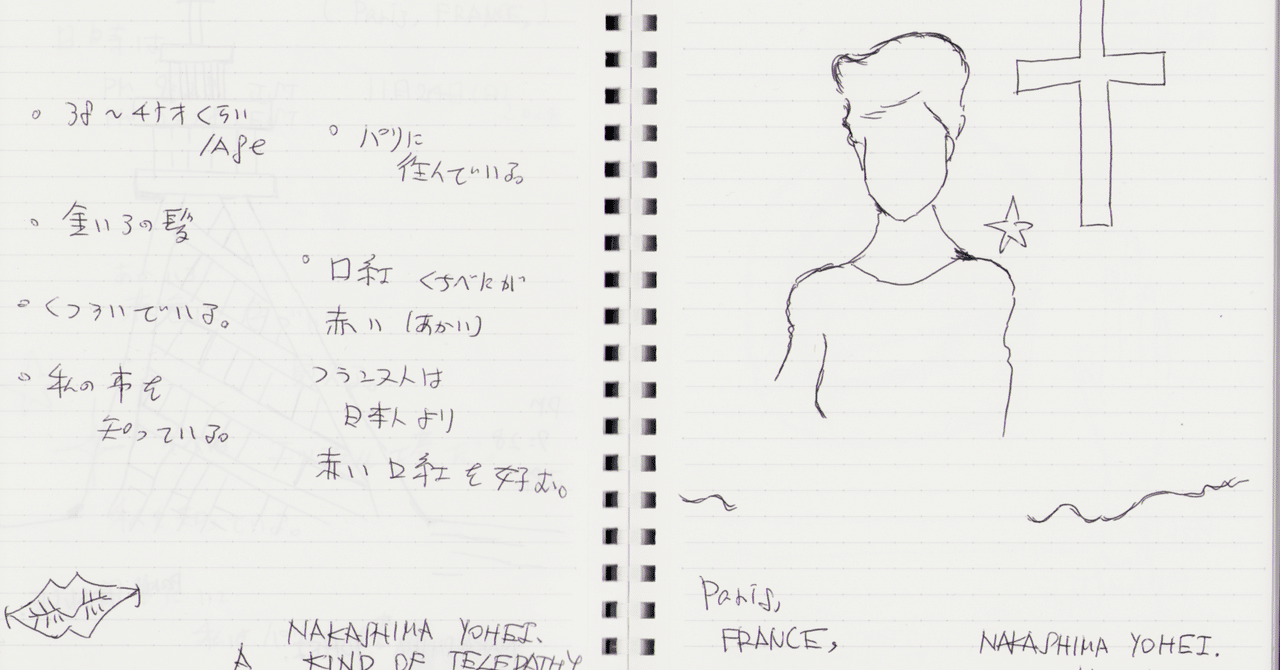 。38～47才くらい
/Age
。金いろの髪
。くつろいでいる。
。私の事を
知っている。
。パリに
住んでいる。
。口紅 くちべにが
赤い (あかい)
フランス人は
日本人より
赤い口紅を好む。
NAKASHIMA YOHEI.
A KIND OF TELEPATHY
Paris,
FRANCE,
NAKASHIMA YOHEI.